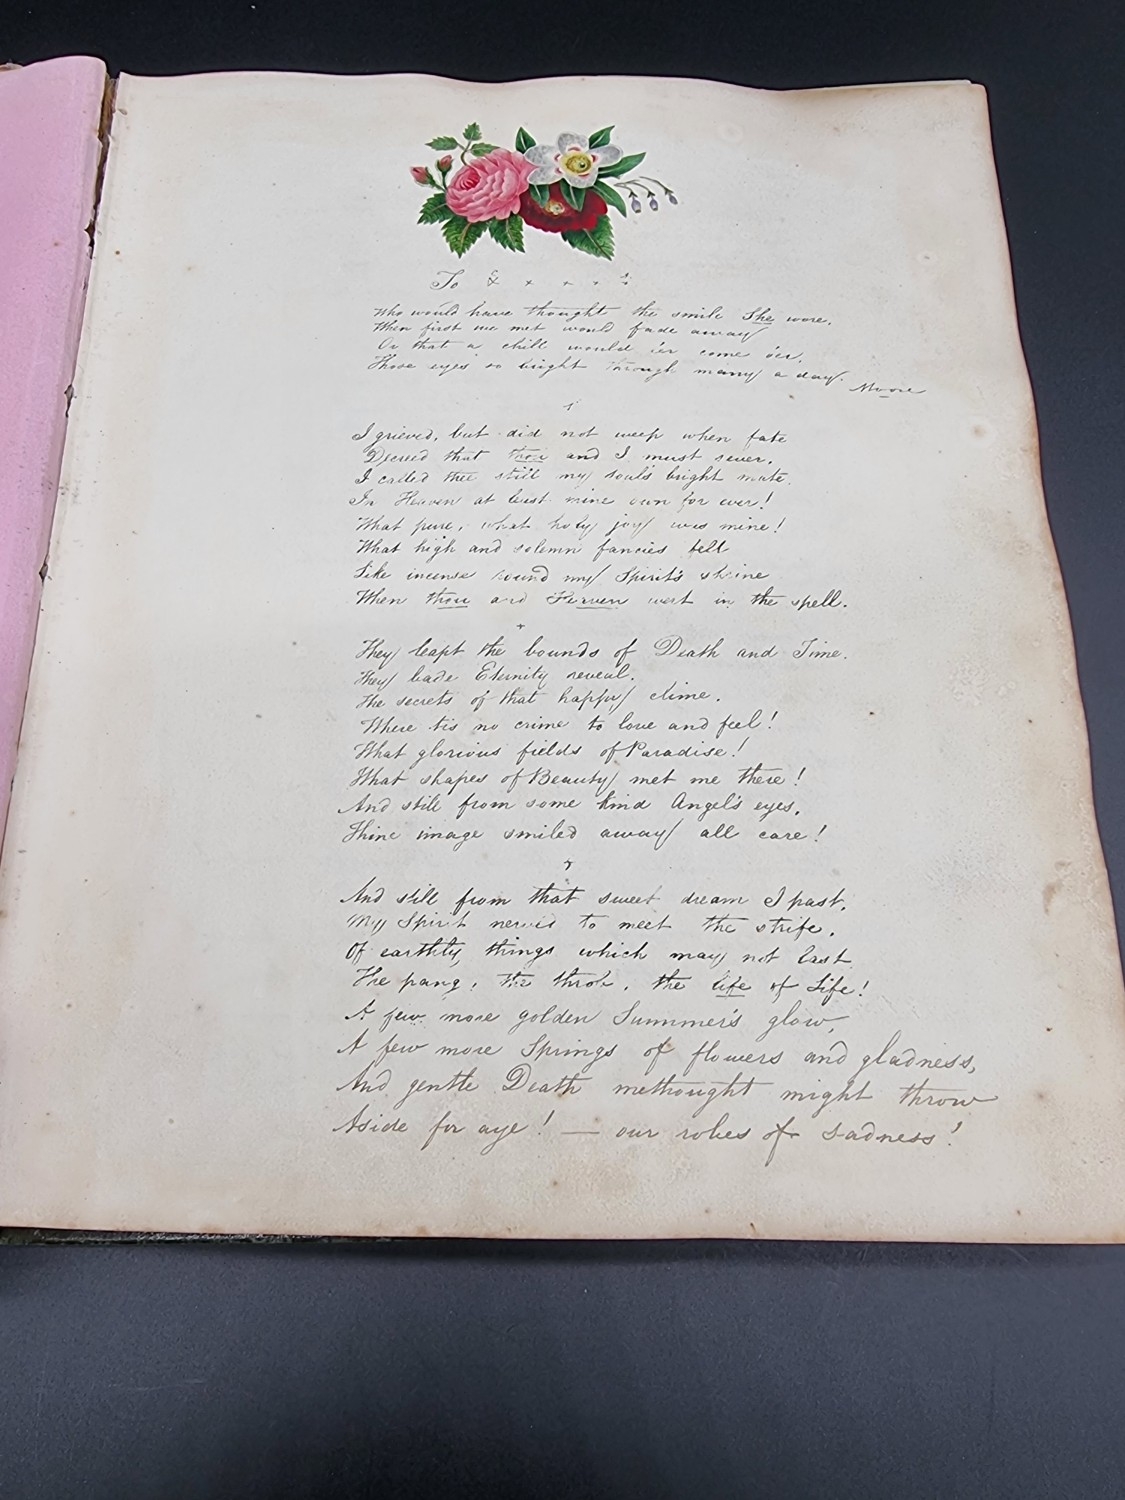 To x x x x x
Who would have thought the smile She wore,
When first we met would fade away
Or that a chill would e'er come o'er,
Those eyes so bright through many a day.
Moore
I grieved, but did not weep when fate
Decreed that thou and I must sever,
I called thee still my soul's bright mate,
In Heaven at least mine own for ever!
What pure, what holy joy was mine!
What high and solemn fancies fell
Like incense round my Spirit's shrine
When thou and Heaven went in the spell.
They leapt the bounds of Death and Time.
They bade Eternity reveal.
The secrets of that happy clime.
Where tis no crime to love and feel!
What glorious fields of Paradise!
What shapes of Beauty met me there!
And still from some kind Angel's eyes,
Thine image smiled away all care!
And still from that sweet dream I past,
My Spirit nerved to meet the strife,
Of earthly things which may not last
The pang, the throb, the life of Life!
A few more golden Summer's glow,
A few more Springs of flowers and gladness,
And gentle Death methought might throw
Aside for aye! — our robes of sadness!